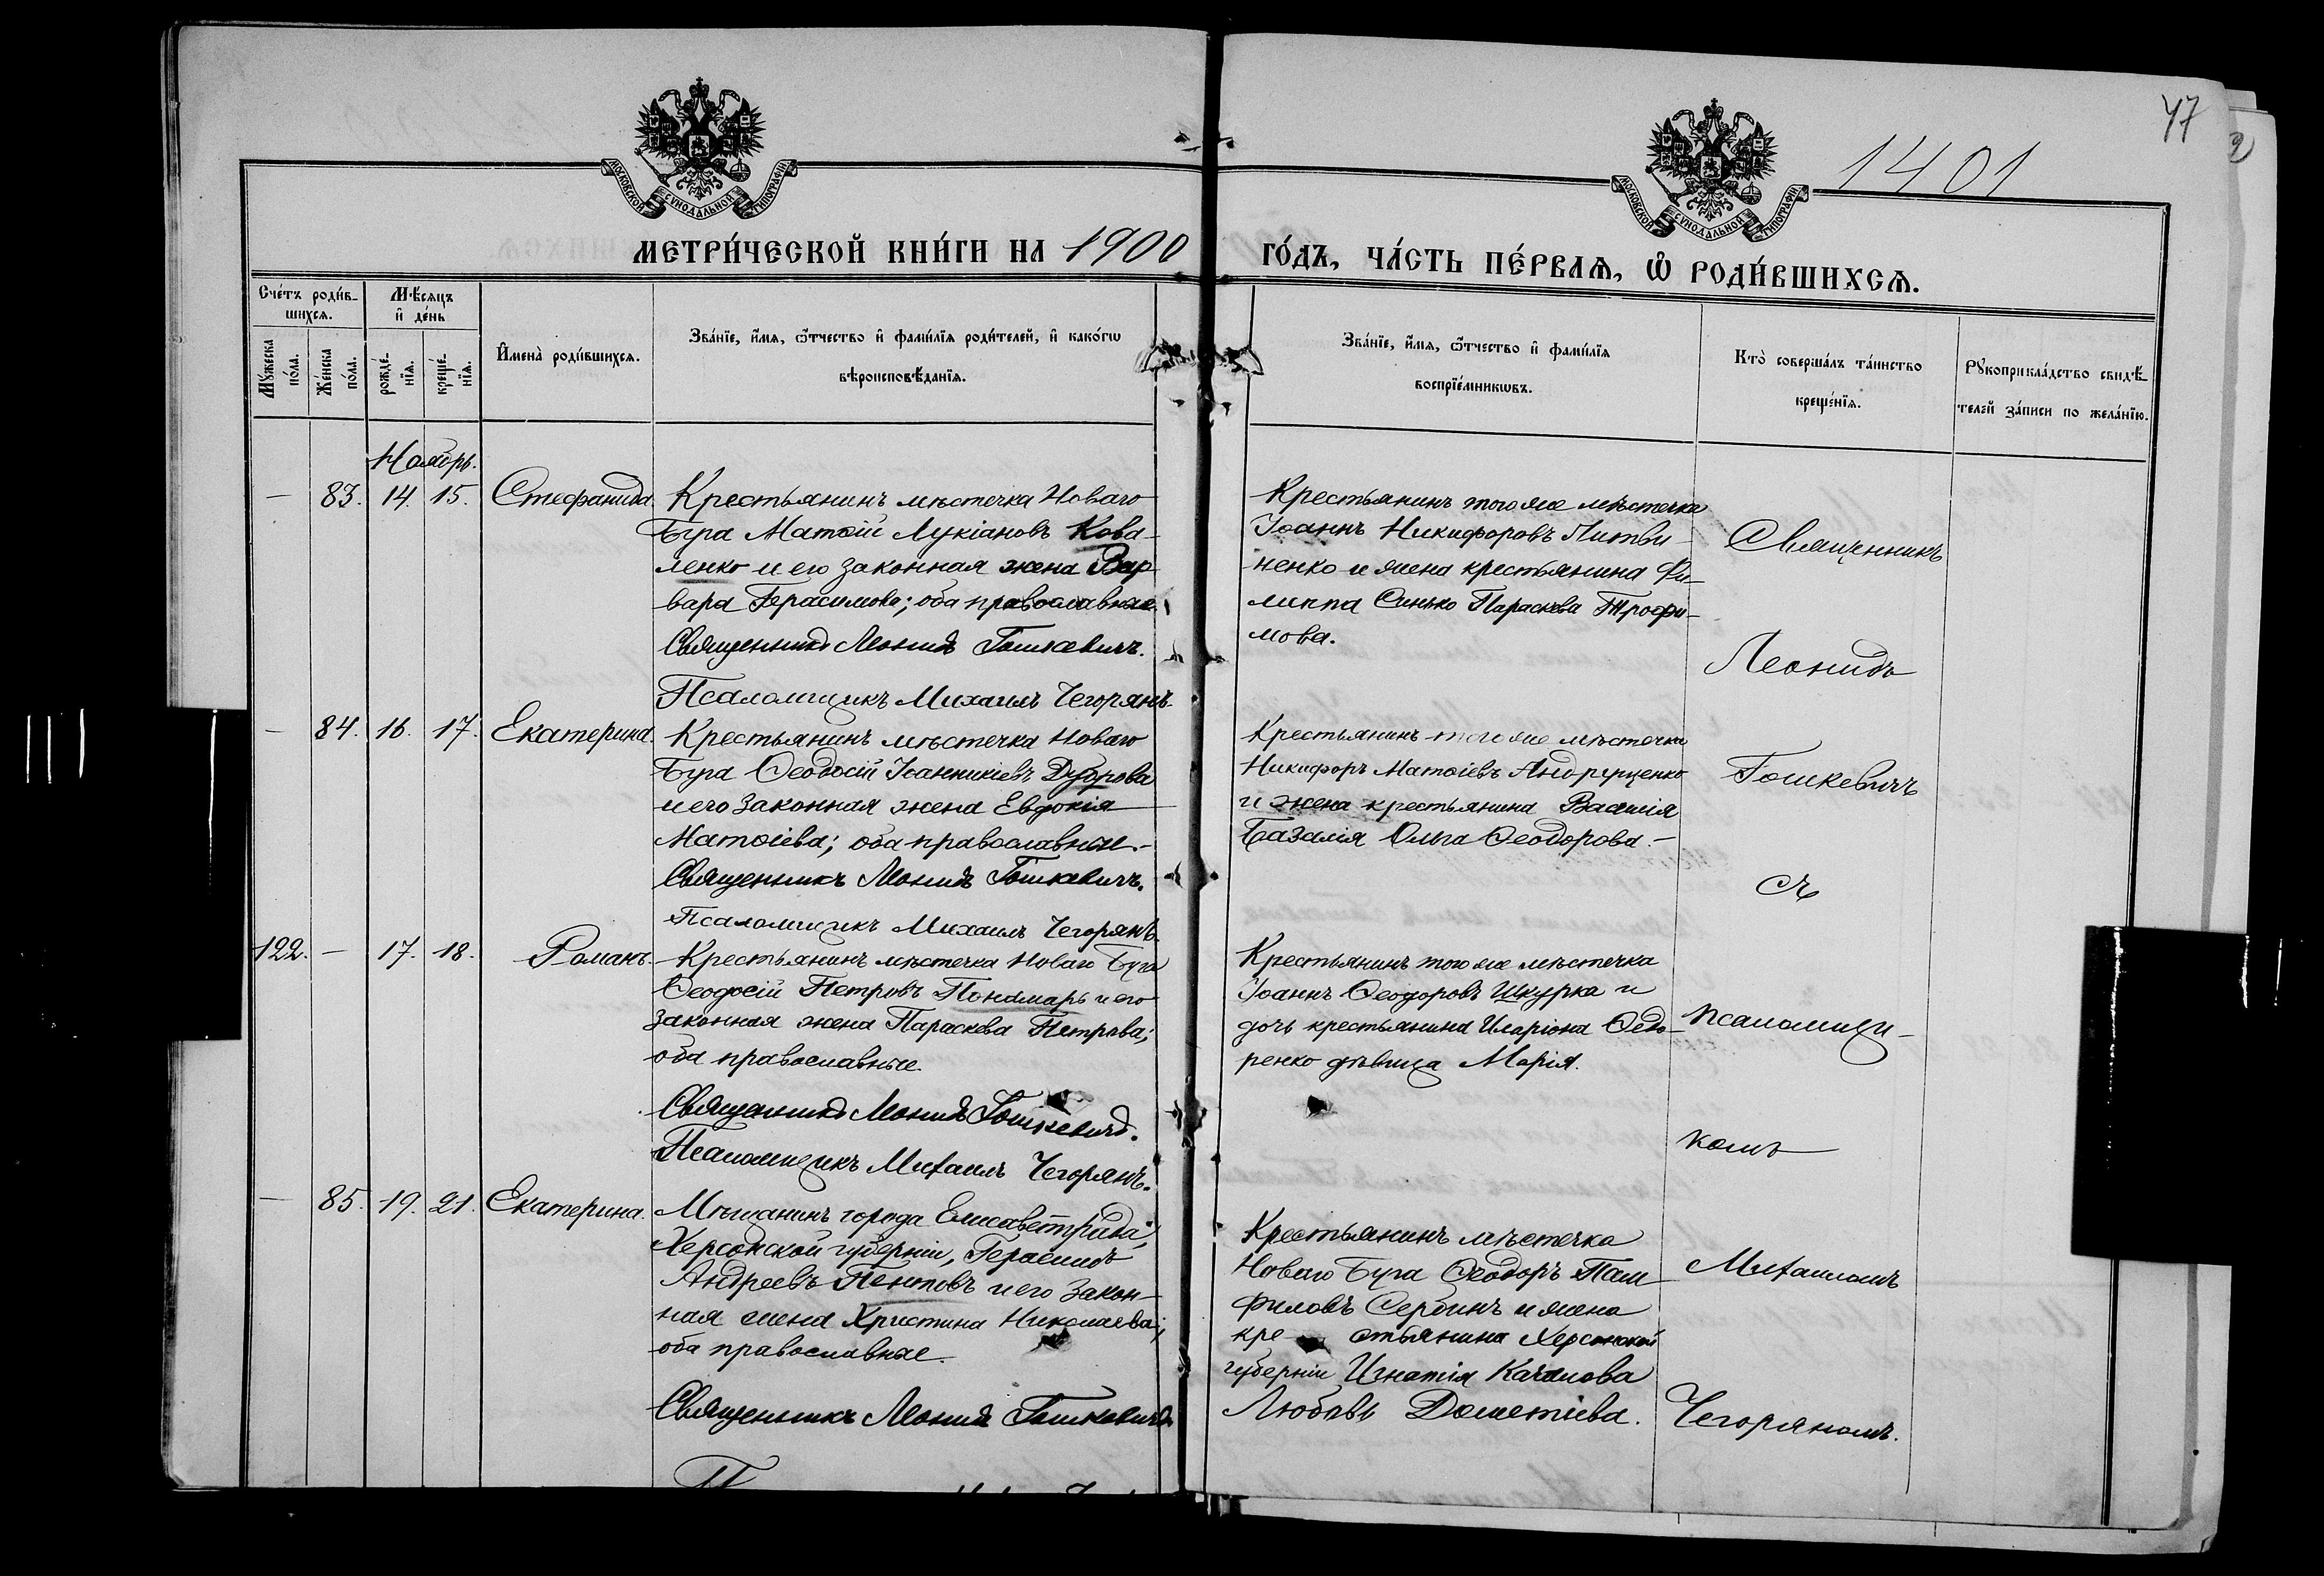 47
1401
МОСКОВСКОЙ СѴНОДАЛЬНОЙ ТИПОГРАФІИ
МОСКОВСКОЙ СѴНОДАЛЬНОЙ ТИПОГРАФІИ
МЕТРИ́ЧЕСКОЙ КНИ́ГИ НА 1900
ГО́ДЪ, ЧА́СТЬ ПЕ́РВАѦ, Ѡ҆ РОДИ́ВШИХСѦ.
Сче́тъ роди́в-
шихсѧ.
Мѣ́сѧцъ
и҆ де́нь
Мꙋ́жеска
по́ла.
Же́нска
по́ла.
рожде́-
нїѧ.
креще́-
нїѧ.
И҆мена̀ роди́вшихсѧ.
Зва́нїе, и҆́мѧ, ѻ҆́тчество и҆ фами́лїѧ роди́телей, и҆ како́гѡ
вѣроисповѣ́данїѧ.
Зва́нїе, и҆́мѧ, ѻ҆́тчество и҆ фами́лїѧ
воспрїе́мникѡвъ.
Кто̀ соверша́лъ та́инство
креще́нїѧ.
Рꙋкоприкла́дство свидѣ́-
телей за́писи по жела́нїю.
Ноябрь.
— 83. 14. 15. Стефанида.
Крестьянинъ мѣстечка Новаго
Буга Матѳій Лукіановъ Кова-
ленко и его законная жена Вар-
вара Герасимова; оба православные.
Священникъ Леонидъ Гошкевичъ.
Псаломщикъ Михаилъ Чегорянъ.
Крестьянинъ того же мѣстечка
Іоаннъ Никифоровъ Литви-
ненко и жена крестьянина Фи-
липпа Синько Параскева Трофи-
мова.
— 84. 16. 17. Екатерина.
Крестьянинъ мѣстечка Новаго
Буга Ѳеодосій Іоанникіевъ Дуброва
и его законная жена Евдокія
Матѳіева; оба православные.-
Священникъ Леонидъ Гошкевичъ.
Псаломщикъ Михаилъ Чегорянъ.
Крестьянинъ того же мѣстечка
Никифоръ Матѳіевъ Андрущенко
и жена крестьянина Василія
Базалія Ольга Ѳеодорова.-
122. — 17. 18. Романъ.
Крестьянинъ мѣстечка Новаго Буга
Ѳеодосій Петровъ Пономарь и его
законная жена Параскева Петрова;
оба православные.
Священникъ Леонидъ Гошкевичъ.
Псаломщикъ Михаилъ Чегорянъ.
Крестьянинъ того же мѣстечка
Іоаннъ Ѳеодоровъ Шкурка и
дочь крестьянина Иларіона Ѳедо-
ренко дѣвица Марія.
— 85. 19. 21. Екатерина.
Мѣщанинъ города Елисаветграда,
Херсонской губерніи, Герасимъ
Андреевъ и его закон-
ная жена Христина Николаева;
оба православные.
Священникъ Леонидъ Гошкевичъ
Крестьянинъ мѣстечка
Новаго Буга Ѳеодоръ Пам-
филовъ Сербинъ и жена
кре- стьянина Херсонской
губерніи Игнатія Качалова
Любовь Дометіева.
Священникъ
Леонидъ
Гошкевичъ
съ
псаломщи-
комъ
Михаиломъ
Чегоряномъ.